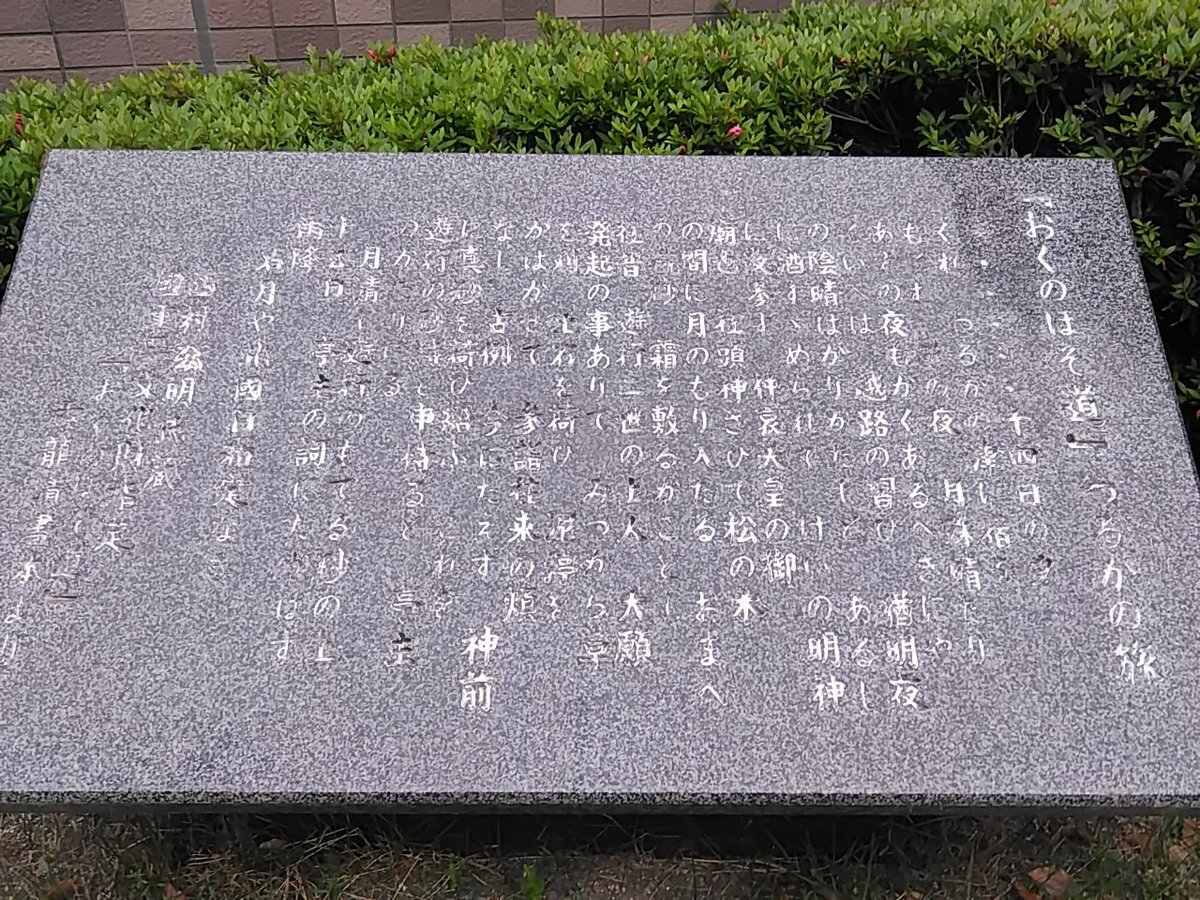 『おくのほそ道』つるがの旅
十四日の夕
くれ つるがの津に 宿を
も の夜 月殊晴たり
あすの夜もかくあるへきにや
いへは 越路の習ひ 猶明夜
の陰晴はかりかたしと あるし
に酒すゝめられて けいの明神
に夜参す 仲哀天皇の御
廟也 社頭神さひて 松の木
の間に 月のもり入たる おまへ
の白砂 霜を敷るかことし
社昔 遊行二世の上人 大願
発起の事ありて みつから草
を刈 土石を荷ひ 泥渟を
かはかせて 参詣往来の煩
なし 古例 今にたえす 神前
に真砂を荷ひ給ふ これを
遊行の砂持と 申侍ると 亭主
のかたりける
月清し 遊行のもてる砂の上
十五日 亭主の詞にたかはす
雨降
名月や 北國日和定なき
西村 弘明 氏 蔵
国 重文 指定
『おくのほそ道』
素龍清書本より